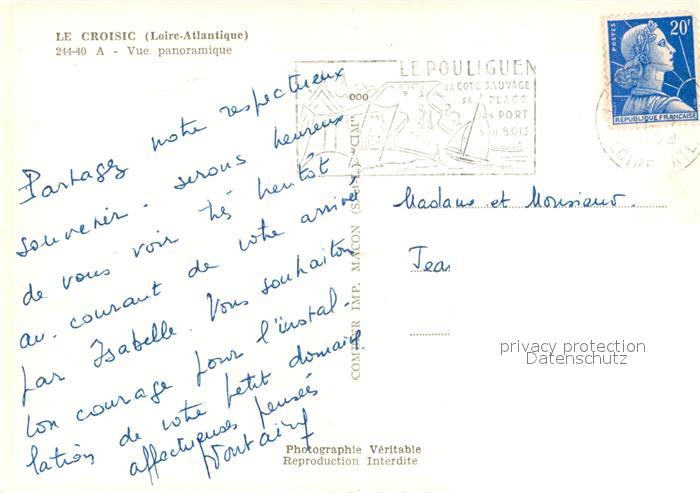 LE CROISIC (Loire-Atlantique)
244-40 A - Vue panoramique
POSTES
20F
REPUBLIQUE FRANÇAISE
LE POULIGUEN
SA COTE SAUVAGE
SA PLAGE
SON PORT
SON BOIS
LOIRE ATL
Partagez notre respectueux
souvenir. serons heureux
de vous voir très bientôt
au courant de votre arrivée
par Isabelle. Vous souhaitons
bon courage pour l'instal-
lation de votre petit domaine
affectueuses pensées
COMBIER IMP. MACON "CIM"
Madame et Monsieur.
Jea
privacy protection
Datenschutz
Photographie Véritable
Reproduction Interdite